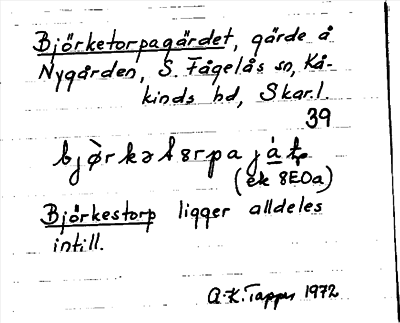 Björketorpagärdet, gärde å
Nygården, S. Fågelås sn, Kå-
kinds hd, Skar.l.
39
(ek 8E0a)
Björkestorp ligger alldeles
intill.
A-K. Tapper 1972